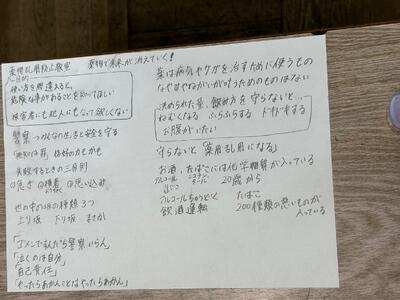 薬物乱用防止教室
薬物で未来が消えていく!
目的
使い方を間違えると、
危険な事があることを知ってほしい
被害者にも犯人にもなって欲しくない
警察 つみんなの生活と安全を守る
失敗するときの三原則
①急ぎ ②横着 ③思い込み
世の中の坂の種類 3つ
上り坂 下り坂 まさか
「ゴメンですんだら警察いらん」
「泣くのは自分」
「自己責任」
「やったらあかんことはやったらあかん」
薬は病気やケガを治すために使うもの
決められた量、飲み方を守らないと…
ねむくなる ふらふらする ドキドキする
お腹がいたい
守らないと「薬用乱用になる」
お酒、たばこには化学物質が入っている
アルコール ニコチン タール 20歳から
アルコールちゅうどく たばこ
飲酒運転 200種類の悪いものが
入っている